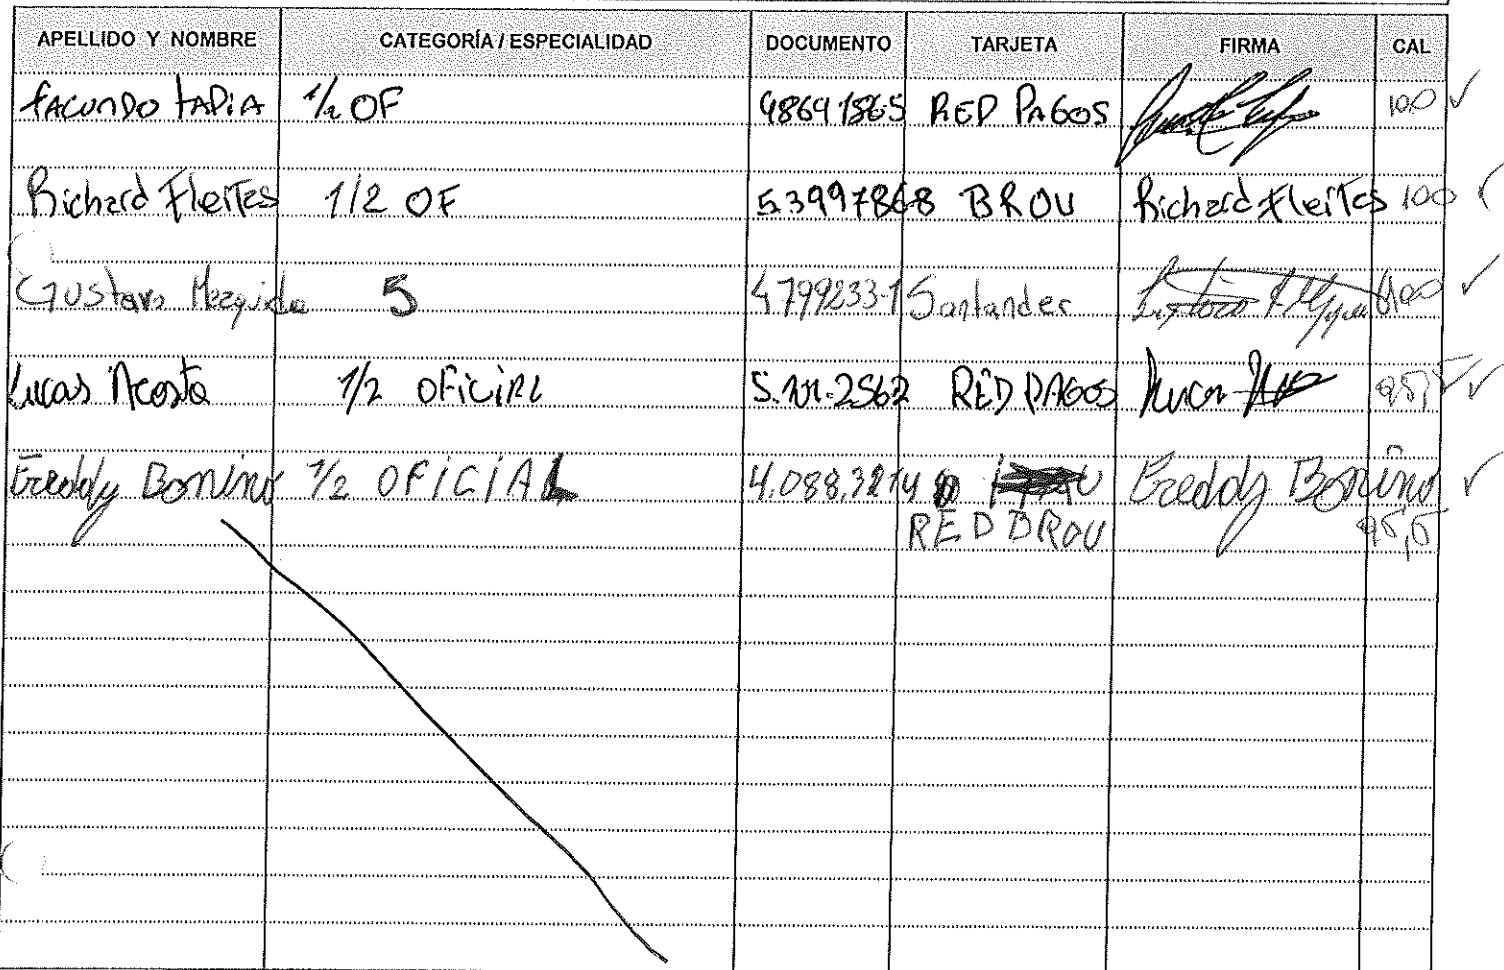 APELLIDO Y NOMBRE CATEGORÍA / ESPECIALIDAD DOCUMENTO TARJETA FIRMA CAL
FACUNDO TAPIA 1/2 OF RED PAGOS 100 ✓
Richard Fleites 1/2 OF 5.3997868 BROU Richard Fleites 100
Gustavo Mezquida 5 4799233-1 Santander 100 ✓
Lucas Acosta 1/2 OFICIAL RED PAGOS Lucas 95,5 ✓
Freddy Bonino 1/2 OFICIAL Freddy Bonino ✓
RED BROU 95,5